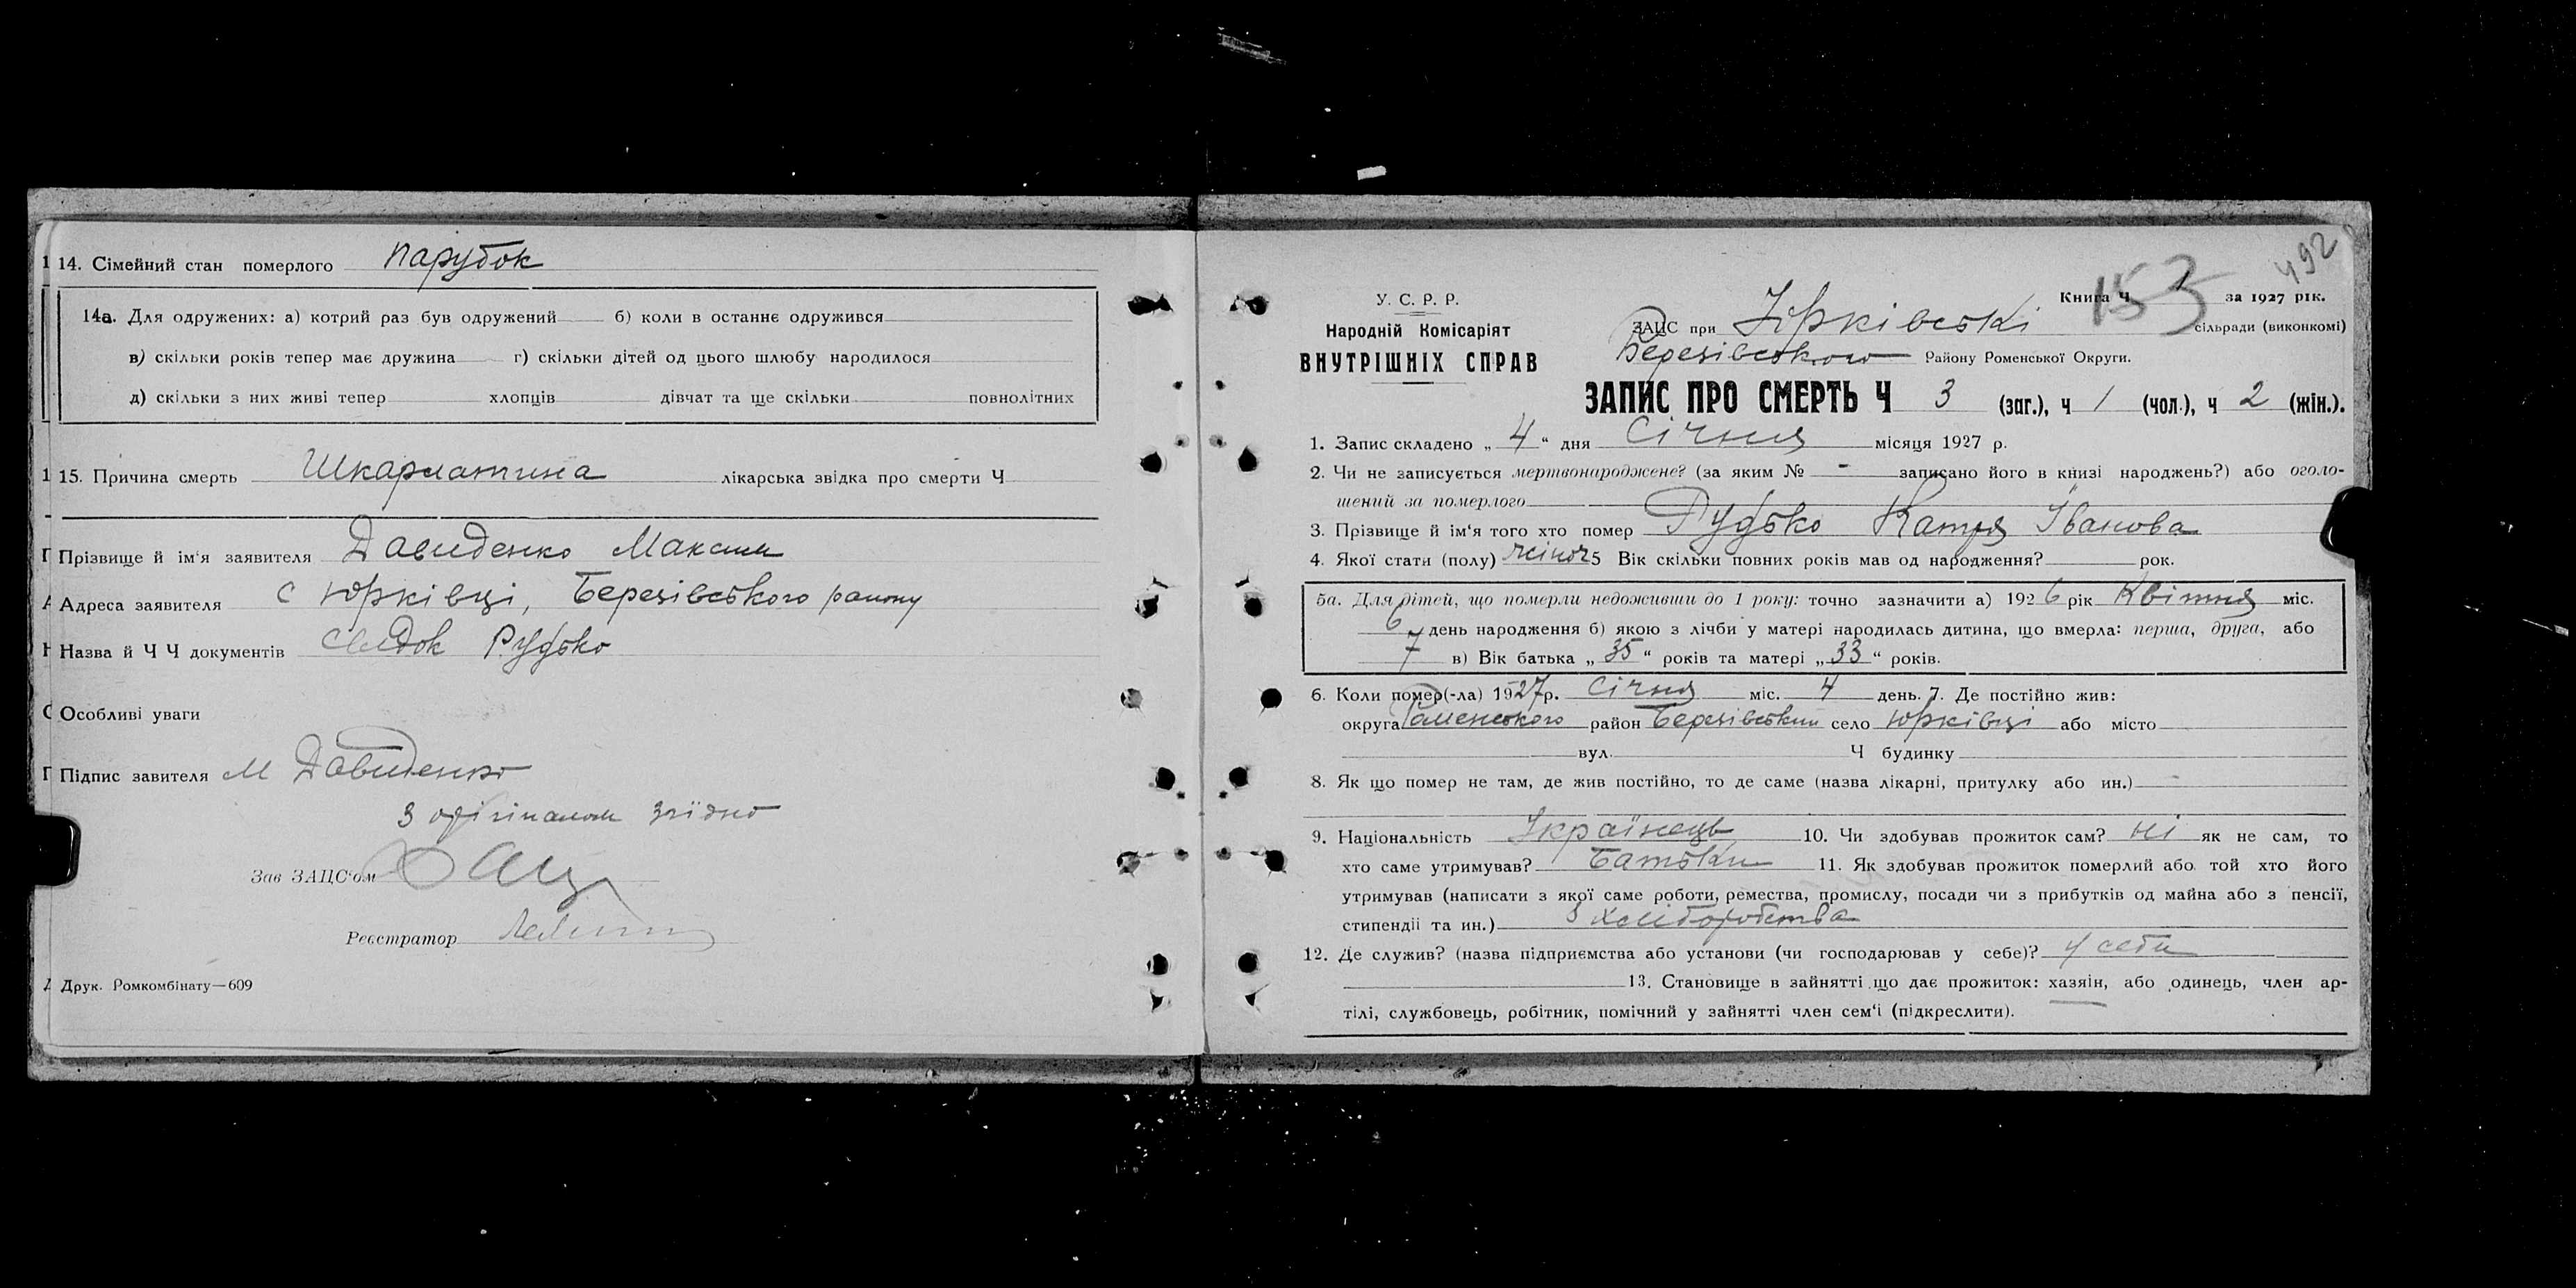 14. Сімейний стан померлого парубок
14а. Для одружених: а) котрий раз був одружений б) коли в останнє одружився
в) скільки років тепер має дружина г) скільки дітей од цього шлюбу народилося
д) скільки з них живі тепер хлопців дівчат та ще скільки повнолітних
15. Причина смерть Шкарлатина лікарська звідка про смерти Ч
Прізвище й ім'я заявителя Давиденко Максим
Адреса заявителя с Юрківці, Березівського району
Назва й Ч Ч документів Свідок Рудько
Особливі уваги
Підпис завителя М Давиденко
З орігіналом згідно
Зав ЗАЦС'ом
Реєстратор
Друк. Ромкомбінату—609
492
153
У. С. Р. Р.
Народній Комісаріят
ВНУТРІШНІХ СПРАВ
Книга Ч за 1927 рік.
ЗАЦС при Юрківські сільради (виконкомі)
Березівського Району Роменської Округи.
ЗАПИС ПРО СМЕРТЬ Ч 3 (заг.), ч 1 (чол.), ч 2 (жін.).
1. Запис складено „ 4 " дня Січня місяця 1927 р.
2. Чи не записується мертвонароджене? (за яким № - записано його в книзі народжень?) або оголо-
шений за померлого
3. Прізвище й ім'я того хто помер Рудько Катря Іванова
4. Якої стати (полу) жіноч 5 Вік скільки повних років мав од народження? рок.
5а. Для дітей, що померли недоживши до 1 року: точно зазначити а) 1926 рік Квітня міс.
6 день народження б) якою з лічби у матері народилась дитина, що вмерла: перша, друга, або
7 в) Вік батька „ 35 " років та матері „ 33 " років.
6. Коли помер(-ла) 1927р. Січня міс. 4 день. 7. Де постійно жив:
округа Роменського район Березівський село Юрківці або місто
вул. Ч будинку
8. Як що помер не там, де жив постійно, то де саме (назва лікарні, притулку або ин.)
9. Національність Українець 10. Чи здобував прожиток сам? ні як не сам, то
хто саме утримував? Батьки 11. Як здобував прожиток померлий або той хто його
утримував (написати з якої саме роботи, ремества, промислу, посади чи з прибутків од майна або з пенсії,
стипендії та ин.) З хліборобства
12. Де служив? (назва підприємства або установи (чи господарював у себе)? у себе
13. Становище в зайнятті що дає прожиток: хазяін, або одинець, член ар-
тілі, службовець, робітник, помічний у зайнятті член сем'ї (підкреслити).